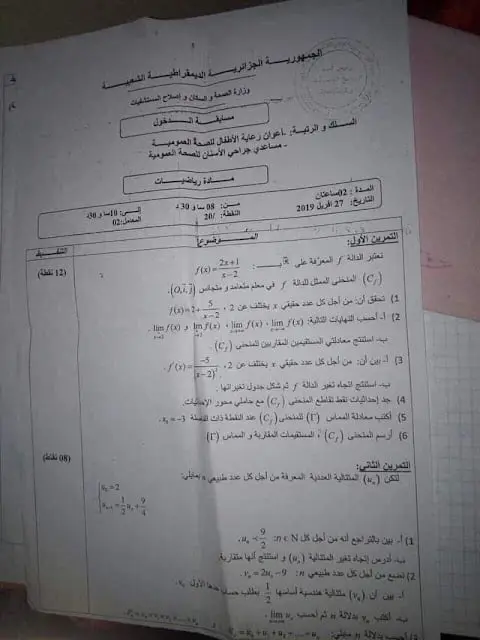 الجمهورية الجزائرية الديمقراطية الشعبية
وزارة الصحة والسكان و إصلاح المستشفيات
مسابقة الدخول
السلك و الرتبة: - أعوان رعاية الأطفال للصحة العمومية
- مساعدي جراحي الأسنان للصحة العمومية
مادة رياضيات
المدة : 02ساعتان من: 08 سا و 30 د إلى: 10سا و 30د
التاريخ: 27 أفريل 2019 النقطة: /20 المعامل:02
الموضوع التنقيط
التمرين الأول: (12 نقطة)
نعتبر الدالة f المعرفة على f(x) = (2x+1)/(x-2)
(C_f) المنحنى الممثل للدالة f في معلم متعامد و متجانس (O,i,j).
1) تحقق أن: من أجل كل عدد حقيقي x يختلف عن 2 ، f(x) = 2 + 5/(x-2)
2) أ- أحسب النهايات التالية: lim f(x) ، lim f(x) ، lim f(x) و lim f(x).
ب- استنتج معادلتي المستقيمين المقاربين للمنحنى (C_f).
3) أ- بين أن: من أجل كل عدد حقيقي x يختلف عن 2 ، f'(x) = -5/(x-2)².
ب- استنتج اتجاه تغير الدالة f ثم شكل جدول تغيراتها.
4) جد إحداثيات نقط تقاطع المنحنى (C_f) مع حاملي محور الإحداثيات.
5) أكتب معادلة المماس (Γ) للمنحنى (C_f) عند النقطة ذات الفاصلة x₀ = -3.
6) أرسم المنحنى (C_f)، المستقيمات المقاربة و المماس (Γ)
التمرين الثاني: (08 نقاط)
لتكن (u_n) المتتالية العددية المعرفة من أجل كل عدد طبيعي n بمايلي:
u₀ = 2
u_{n+1} = 1/2 u_n + 9/4
1) أ- بين بالتراجع أنه من أجل كل n ∈ N: u_n < 9/2.
ب- أدرس إتجاه تغير المتتالية (u_n) و استنتج أنها متقاربة.
2) نضع من أجل كل عدد طبيعي n: v_n = 2u_n - 9.
أ- بين أن (v_n) متتالية هندسية أساسها 1/2 يطلب حساب حدها الأول v₀.
ب- أكتب v_n بدلالة n ثم أحسب lim u_n.
بدلالة n مايلي: u₀ + u₁ + u₂ + ... + u_n